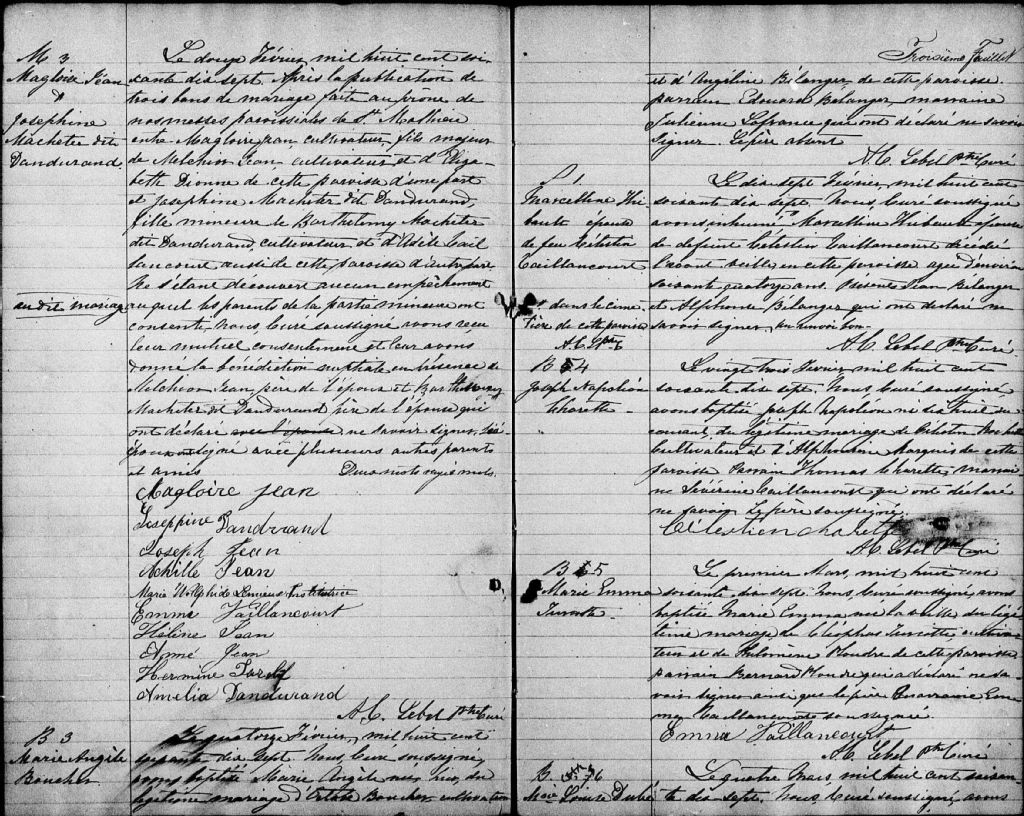 M 3
Magloire Jean
&
Josephine
Macheter dit
Dandurand.
au dit mariage
Le douze Février, mil huit cent soi-
xante dix sept. Après la publication de
trois bans de mariage faite au prône de
nos messes paroissiales de St. Mathieu
entre Magloire Jean cultivateur, fils majeur
de Melchior Jean cultivateur et d'Eliza-
beth Dionne de cette paroisse d'une part
et Josephine Macheter dit Dandurand,
fille mineure de Barthelemy Macheter
dit Dandurand, cultivateur, et d'Adèle Vail
lancourt aussi de cette paroisse d'autre part
Ne s'étant découvert aucun empêchement
auquel les parents de la partie mineure ont
consenti. Nous, Curé soussigné avons reçu
leur mutuel consentement et leur avons
donné la bénédiction nuptiale en présence de
Melchior Jean père de l'époux et Barthelemy
Macheter dit Dandurand père de l'épouse qui
ont déclaré ne savoir signer. Les
époux ont signé avec plusieurs autres parents
et amis Deux mots rayés nuls.
Magloire Jean
Joseppine Dandurand
Joseph Jean
Achille Jean
Marie Institutrice
Emma Vaillancourt
Héline Jean
Aimé Jean
Hermine Tardif
Amelia Dandurand
A. C. Lebel Ptre Curé
B 3
Marie Angèle
Boucher
Le quatorze Février, mil huit cent
soixante dix sept. Nous, Curé soussigné,
avons baptisé Marie Angèle née hier, du
légitime mariage d' Boucher cultivateur
Troisième Feuillet
et d'Angéline Bélanger de cette paroisse.
parrain Edouard Bélanger, marraine
Julienne Lafrance qui ont déclaré ne savoir
signer. Le père absent
A. C. Lebel Ptre Curé
S 1
Marcelline Thi-
bault épouse
de feu Célestin
Vaillancourt
dans le cime
tière de cette paroisse
A. C. L Ptre
Le dix sept Février, mil huit cent
soixante dix sept. Nous, Curé soussigné
avons inhumé Marcelline Thibault épouse
de defunt Célestin Vaillancourt décédée
l'avant veille en cette paroisse agée d'environ
soixante quatorze ans. Présents Jean Bélanger
et Alphonse Bélanger qui ont déclaré ne
savoir signer. un renvoi bon.
A. C. Lebel Ptre Curé
B 4
Joseph Napoléon
Charette
Le vingt trois Février mil huit cent
soixante dix sept. Nous, Curé soussigné,
avons baptisé Joseph Napoléon né dix huit du
courant, du légitime mariage de Célestin Charette
Cultivateur et d'Alphonsine Marquis de cette
paroisse Parrain Thomas Charette, marrai
ne Sévérine Vaillancourt qui ont déclaré
ne savoir Le père soussigné.
Célestien charette
A. C. Lebel Ptre Curé
B 5
Marie Emma
Turcotte
Le premier Mars, mil huit cent
soixante dix sept. Nous, Curé soussigné, avons
baptisé Marie Emma née la veille du légi-
time mariage de Cléophas Turcotte cultiva-
teur et de Philomène Plourde de cette paroisse
parrain Bernard Plourde qui a déclaré ne sa-
voir signer ainsi que le père. La marraine Em-
ma Vaillancourt soussignée.
Emma Vaillancourt
A. C. Lebel Ptre Curé
B 6
Marie Louise Dubé
Le quatre Mars, mil huit cent soixan
te dix sept. Nous, Curé soussigné, avons